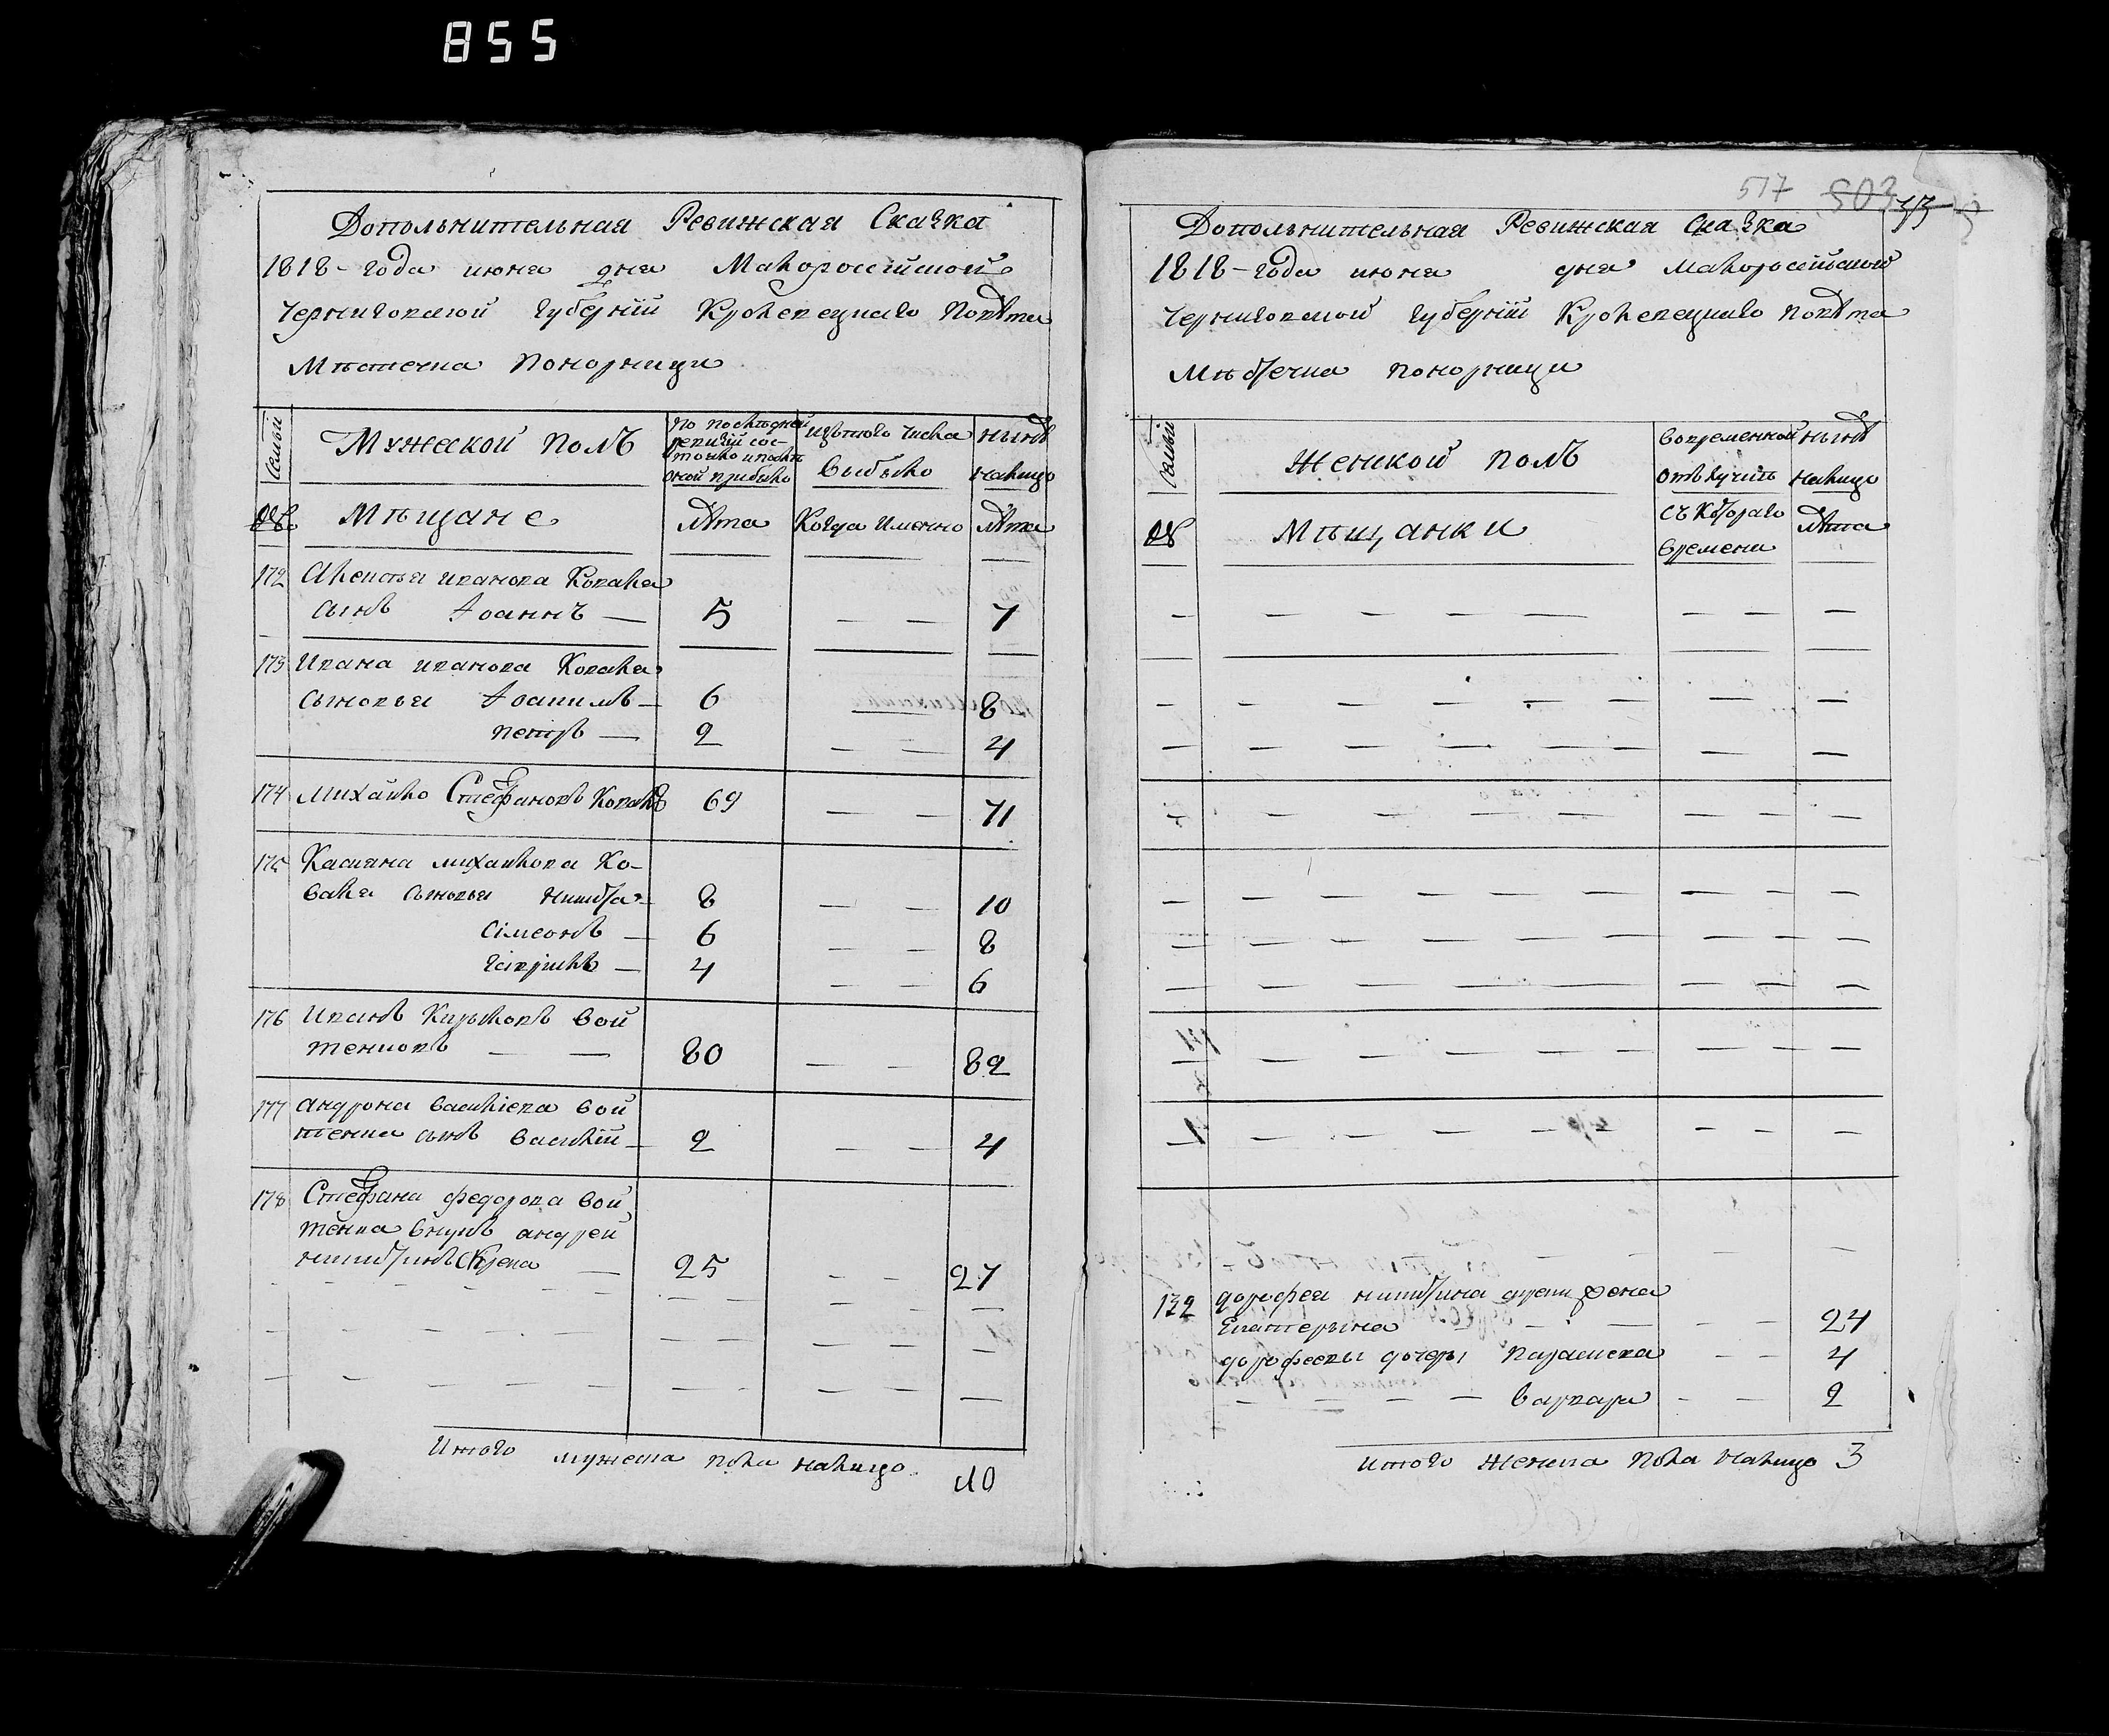 855
Дополнительная Ревижская Сказка
1818-года июня дня Малоросийской
Черниговской Губернїи Кролевецкаго Повѣта
Мѣстечка Понорници
Семьи
Мужеской полъ
По последней
ревизїи сос-
тояло и после
оной прибыло
Изѣтого числа
выбыло
Нынѣ
налицо
№
Мѣщане
Лѣта
Когда Именно
Лѣта
172 Алексѣя иванова Коваля
сынъ Іоаннъ — 5 — — 7
173 Ивана иванова Коваля
сыновья Іоакимъ — 6 — 8
петръ — 2 — — 4
174 Михайло Стефановъ Коваль 69 — — 71
175 Касияна михайлова Ко-
валя сыновья никита — 8 — — 10
Сімеонъ — 6 — — 8
гавріилъ — 4 — — 6
176 Иванъ Кириловъ Вой
тенковъ — — 80 — — 82
177 андрона василіева вой
тенка сынъ василій — 2 — — 4
178 Стефана федорова вой
тенка внукъ андрей
никитинъ — 25 — — 27
Итого мужеска пола налицо 10
517 503
Дополнительная Ревижская Сказка
1818-года июня дня малоросийской
Черниговской Губернїи Кролевецкаго повѣта
Мѣстечка понорници
Семьи
Женской полъ
вовременной
отлучкѣ
Нынѣ
налицо
№
Мѣщанки
съ которого
времени
Лѣта
132 дорофея никитина жена
Екатерына — — 24
дорофеевы дочеры параскева — — 4
варвара — — 2
Итого женска пола налицо 3